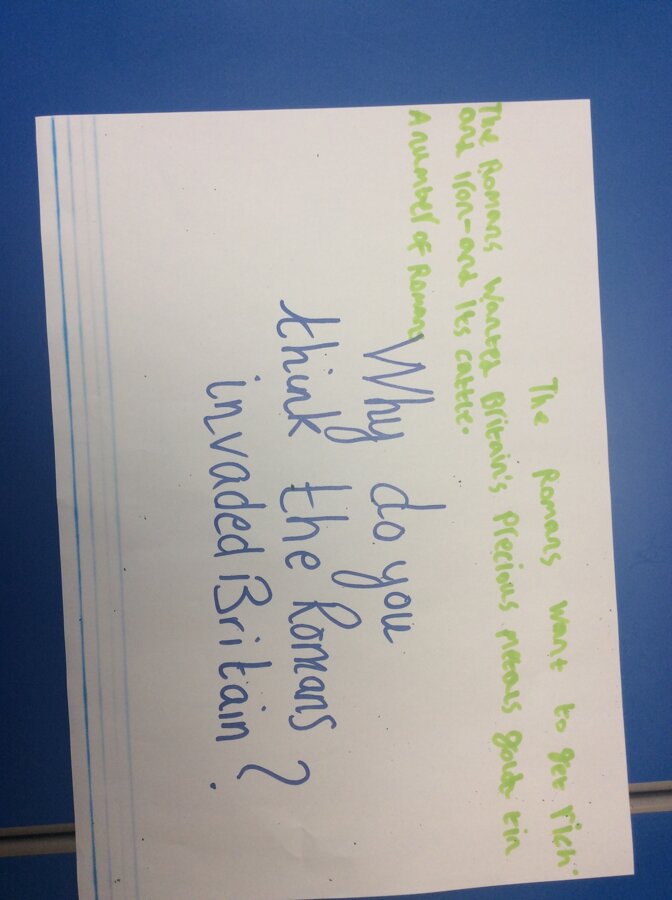 The Romans want to get rich.
The Romans wanted Britain's Precious metals gold tin
and iron-and its cattle.
A number of Romans
Why do you
think the Romans
invaded Britain?